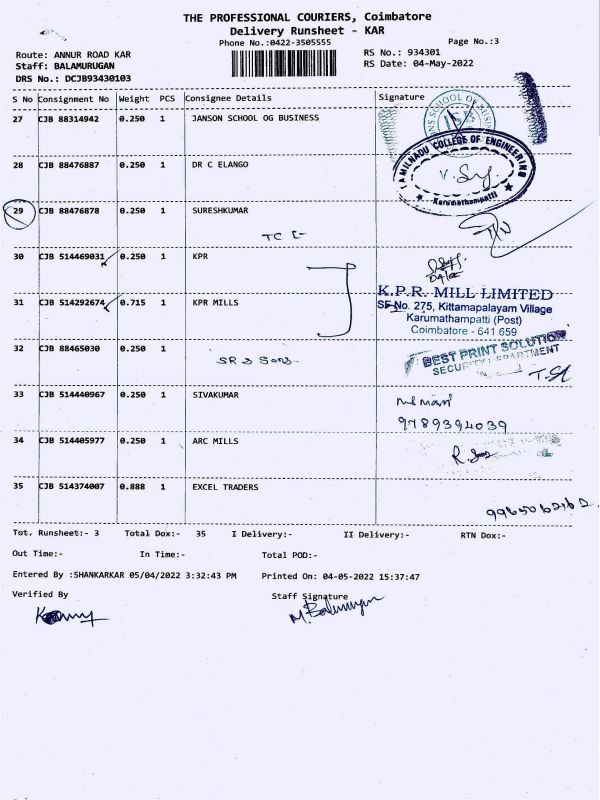 THE PROFESSIONAL COURIERS, Coimbatore
Delivery Runsheet - KAR
Phone No.:0422-3505555
Page No.:3
Route: ANNUR ROAD KAR
RS No.: 934301
Staff: BALAMURUGAN
RS Date: 04-May-2022
DRS No.: DCJB93430103
S No Consignment No Weight PCS Consignee Details Signature
27 CJB 88314942 0.250 1 JANSON SCHOOL OG BUSINESS
TAMILNADU COLLEGE OF ENGINEERING
Karumathampatti
28 CJB 88476887 0.250 1 DR C ELANGO
29 CJB 88476878 0.250 1 SURESHKUMAR
30 CJB 514469031 0.250 1 KPR
31 CJB 514292674 0.715 1 KPR MILLS
K.P.R. MILL LIMITED
SF No. 275, Kittamapalayam Village
Karumathampatti (Post)
Coimbatore - 641 659
32 CJB 88465030 0.250 1
BEST PRINT SOLUTION
SECURITY DEPARTMENT
33 CJB 514440967 0.250 1 SIVAKUMAR
9789394039
34 CJB 514405977 0.250 1 ARC MILLS
35 CJB 514374007 0.888 1 EXCEL TRADERS
Tot. Runsheet:- 3 Total Dox:- 35 I Delivery:- II Delivery:- RTN Dox:-
Out Time:- In Time:- Total POD:-
Entered By :SHANKARKAR 05/04/2022 3:32:43 PM Printed On: 04-05-2022 15:37:47
Verified By Staff Signature
M. Balamurugan